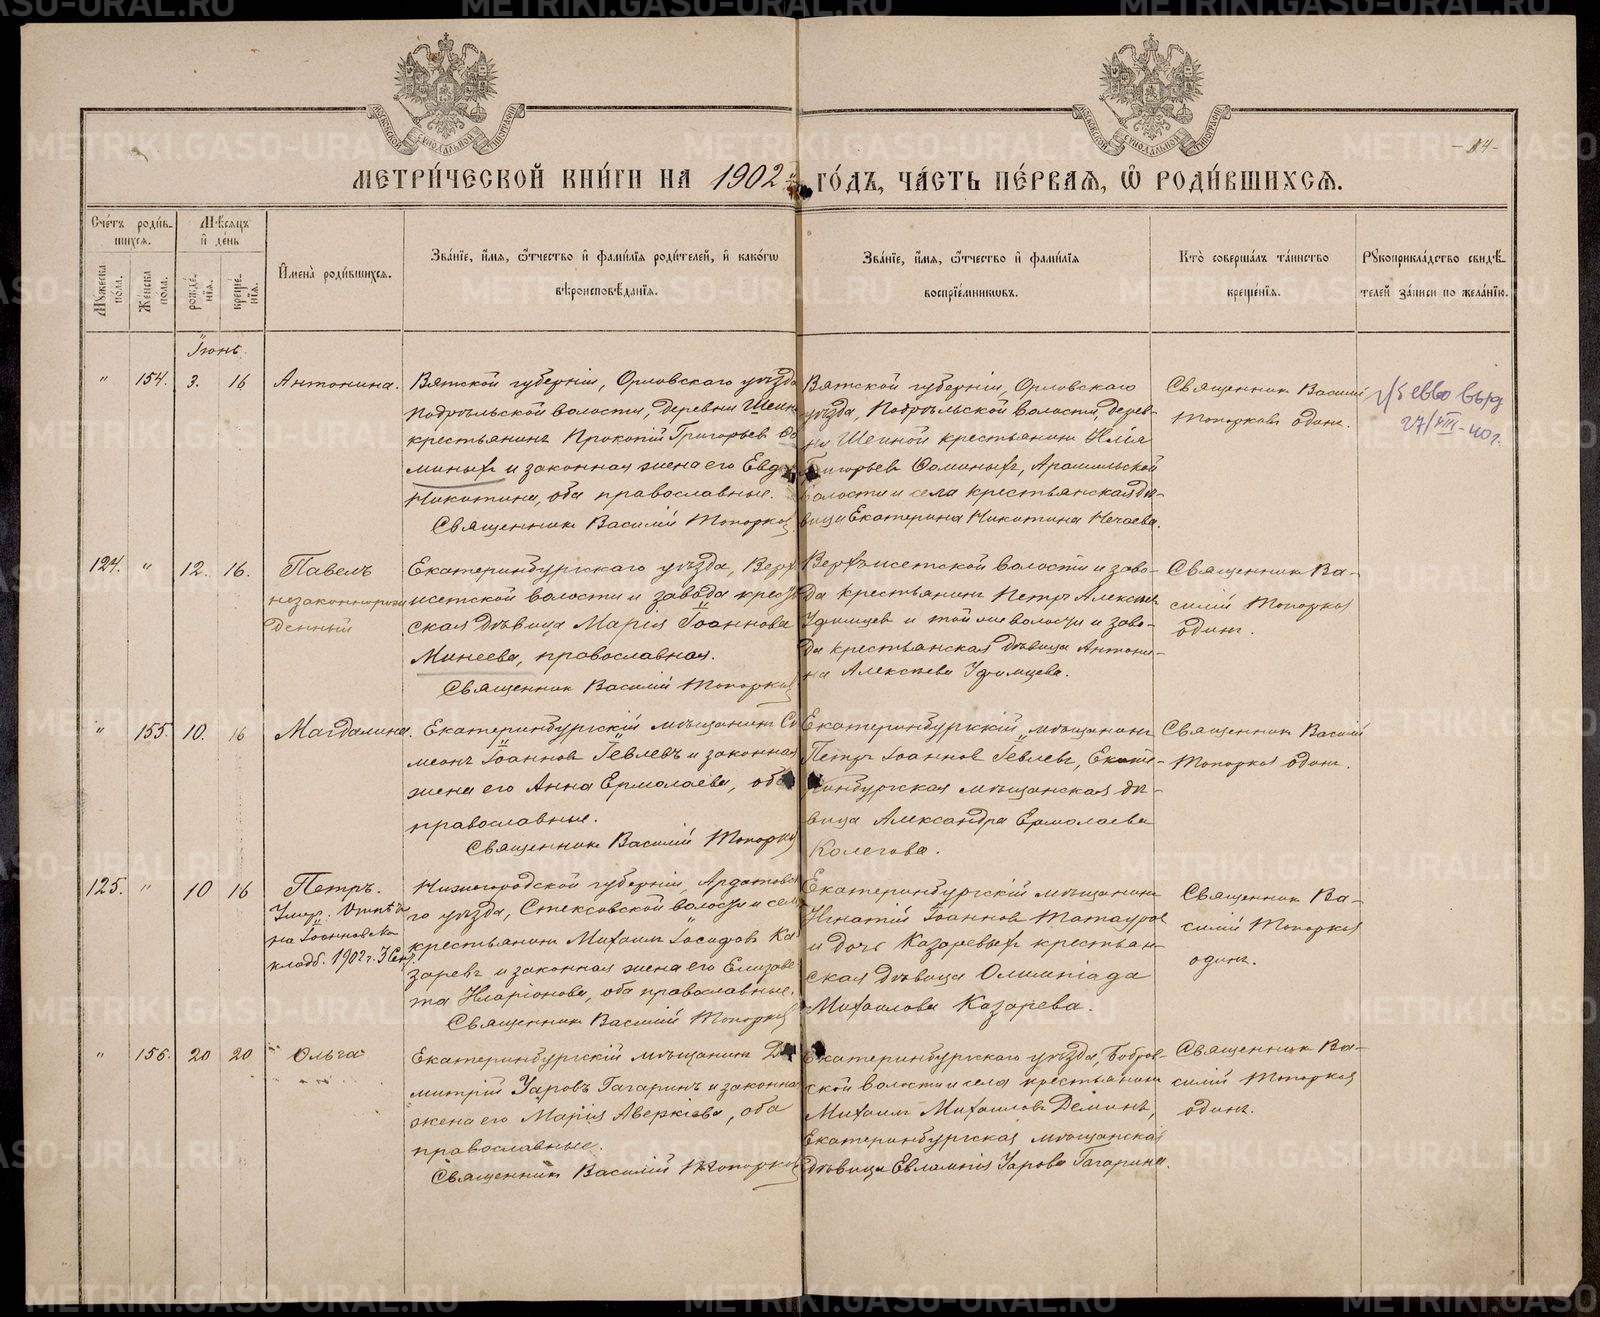 МОСКОВСКОЙ СѴНОДАЛЬНОЙ ТИПОГРАФІИ
МОСКОВСКОЙ СѴНОДАЛЬНОЙ ТИПОГРАФІИ
МЕТРИ́ЧЕСКОЙ КНИ́ГИ НА 1902 ГО́ДЪ, ЧА́СТЬ ПЕ́РВАѦ, Ѡ҆ РОДИ́ВШИХСѦ.
Сче́тъ роди́в-
шихсѧ.
Мѣ́сѧцъ
и҆ де́нь
Мꙋ́жеска по́ла.
Же́нска по́ла.
рожде́-
нїѧ.
креще́-
нїѧ.
И҆мена̀ роди́вшихсѧ.
Зва́нїе, и҆́мѧ, ѻ҆́тчество и҆ фами́лїѧ роди́телей, и҆ како́гѡ
вѣроисповѣ́данїѧ.
Зва́нїе, и҆́мѧ, ѻ҆́тчество и҆ фами́лїѧ
воспрїе́мникѡвъ.
Кто̀ соверша́лъ та́инство
креще́нїѧ.
Рꙋкоприкла́дство свидѣ́-
телей за́писи по жела́нїю.
Іюнь.
" 154. 3. 16 Антонина.
Вятской губерніи, Орловскаго уѣзда
Подрѣльской волости, деревни Шеин
крестьянинъ Прокопій Григорьев Ѳо
миныхъ и законная жена его Евд
Никитина, оба православные.
Священник Василій Топорков
Вятской губерніи, Орловскаго
уѣзда, Подрѣльской волости, дерев-
ни Шеиной крестьянин Илія
Григорьев Ѳоминыхъ, Арамильской
волости и села крестьянская дѣ-
вица Екатерина Никитина Нечаева.
Священник Василій
Топорков один.
27/VIII-40г.
124. " 12. 16. Павелъ
незаконнорож
денный
Екатеринбургскаго уѣзда, Верх
исетской волости и завода крестьян
ская дѣвица Марія Іоаннова
Минеева, православная.
Священник Василій Топорков
Верхъисетской волости и заво-
да крестьянинъ Петръ Алексѣев
Уфимцев и той же волости и заво-
да крестьянская дѣвица Антони-
на Алексѣева Уфимцева.
Священник Ва-
силій Топорков
один.
" 155. 10. 16 Магдалина.
Екатеринбургскій мѣщанин Си
меонъ Іоаннов Гевлевъ и законная
жена его Анна Ермолаева, оба
православные.
Священник Василій Топорков
Екатеринбургскій мѣщанин
Петръ Іоаннов Гевлевъ, Екате-
ринбургская мѣщанская дѣ-
вица Александра Ермолаева
Колегова.
Священник Василій
Топорков один.
125. " 10 16 Петръ.
на Іоанновско
кладб. 1902 г.
Нижегородской губерніи, Ардатовска
го уѣзда, Стексовской волости и села
крестьянин Михаил Іосифов Ка
зарев и законная жена его Елизаве
та Иларіонова, оба православные.
Священник Василій Топорков
Екатеринбургскій мѣщанин
Игнатій Іоаннов Татауров
и дочь Казаревых крестьян-
ская дѣвица Олимпіада
Михаилова Казарева.
Священник Ва-
силій Топорков
один.
" 156. 20 20 Ольга
Екатеринбургскій мѣщанин Ди
митрій Уаровъ Гагаринъ и законна
жена его Марія Аверкіева, оба
православные.
Священник Василій Топорков
Екатеринбургскаго уѣзда, Бобров-
ской волости и села крестьянин
Михаил Михаилов Деминъ,
Екатеринбургская мѣщанская
дѣвица Евлампія Уарова Гагарина.
Священник Ва-
силій Топорков
один.
METRIKI.GASO-URAL.RU